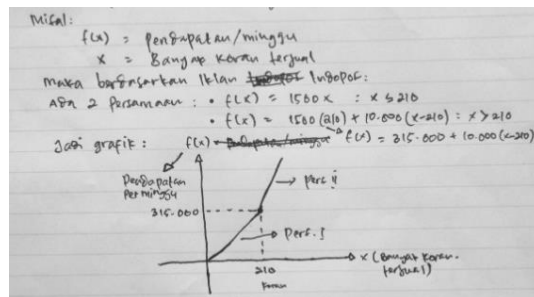 Misal:
f(x) = pendapatan/minggu
x = Banyak Koran terjual
maka berdasarkan Iklan Indopos:
Ada 2 Persamaan : • f(x) = 1500x : x ≤ 210
• f(x) = 1500(210) + 10.000(x-210) : x > 210
Jadi grafik : f(x) f(x) = 315.000 + 10.000(x-210)
Pendapatan
Per minggu
315.000
pers. ii
pers. I
210
Koran
x (Banyak Koran
terjual)